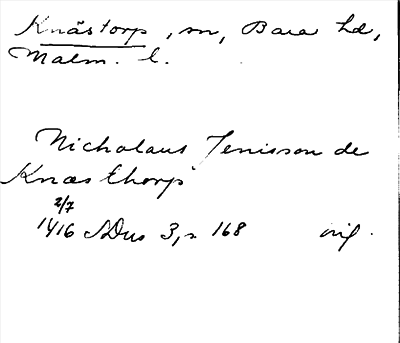 Knästorp, sn, Bara hd,
Malm. l.
Nicholaus Jenisson de
Knæsthorp
2/7
1416 SDns 3, s 168 orig.